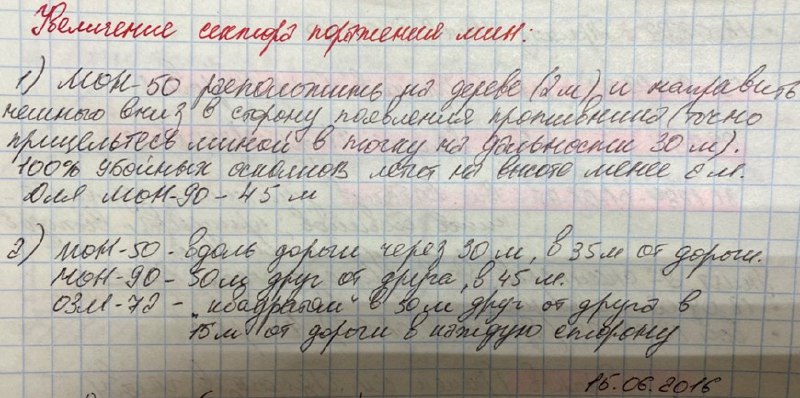 Увеличение сектора поражения мин:
1) МОН-50 расположить на дереве (2м) и направить
немного вниз в сторону появления противника (точно
прицельтесь миной в точку на дальности 30 м).
100% убойных осколков летят на высоте менее 2 м.
Для МОН-90 - 45 м
2) МОН-50 - вдоль дороги через 30 м, в 35м от дороги.
МОН-90 - 50м друг от друга, в 45 м.
ОЗМ-72 - "квадратом" в 50м друг от друга в
15м от дороги в каждую сторону
15.06.2016